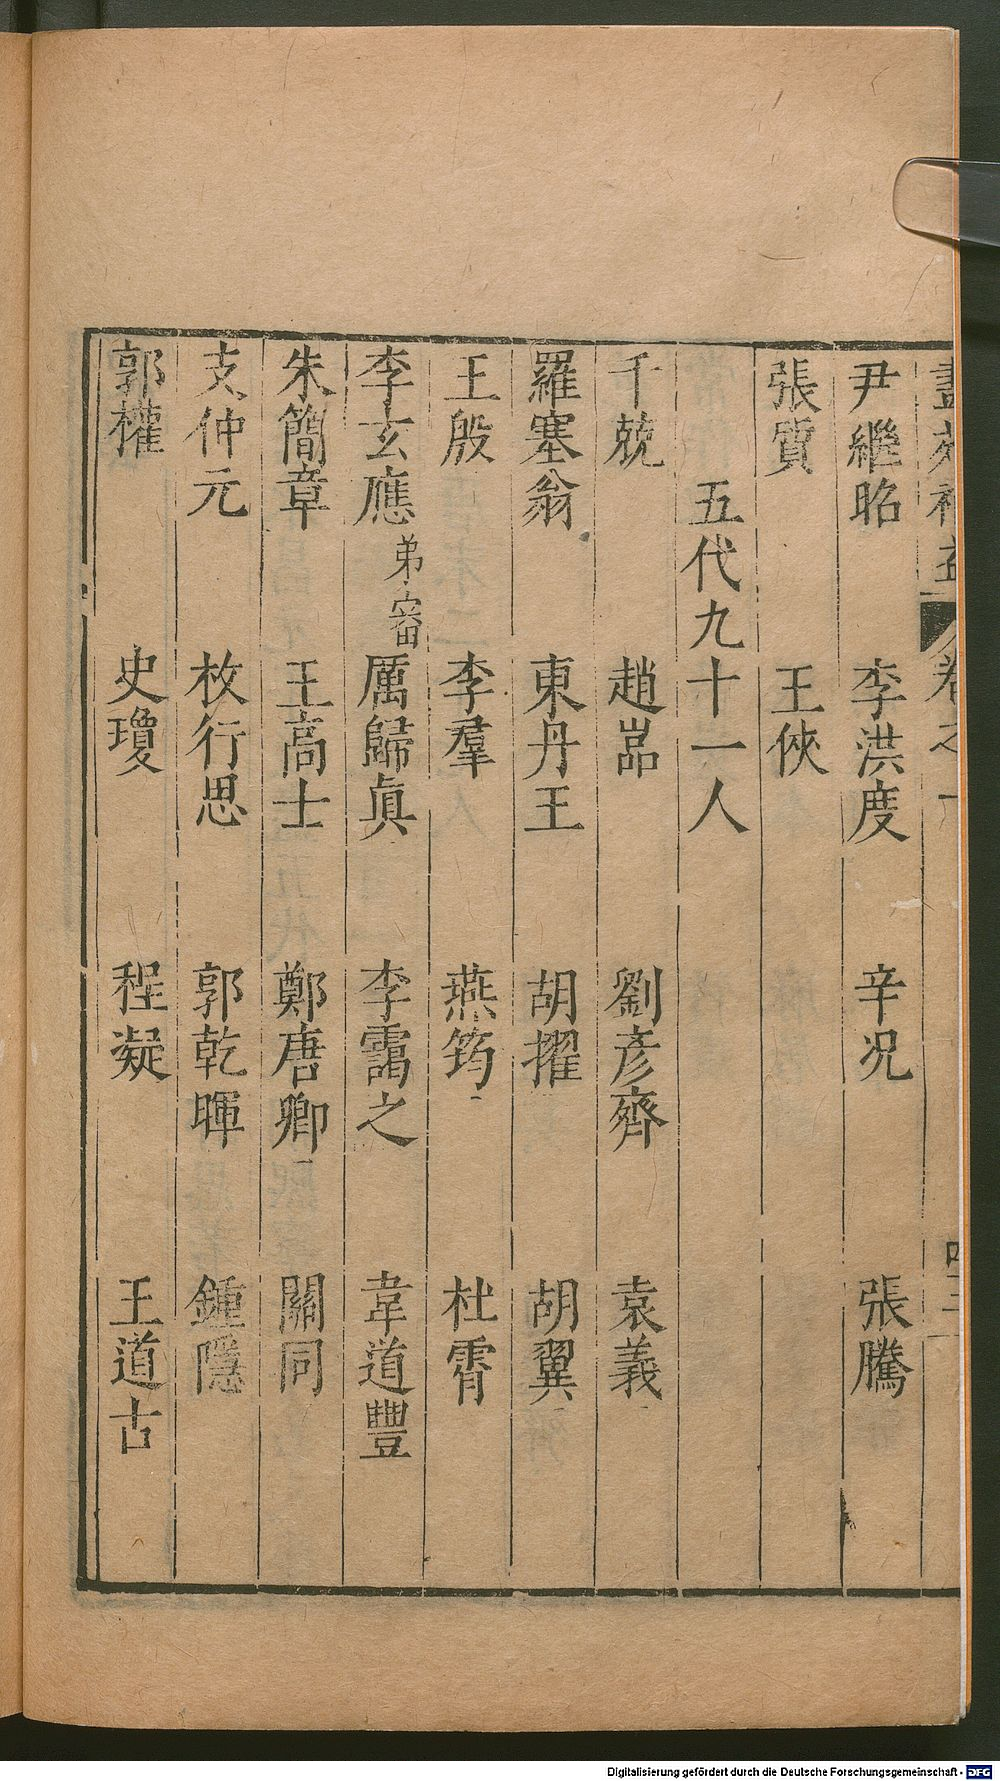 畫苑補益 卷之一 四十三
尹繼昭 李洪度 辛况 張騰
張質 王俠
五代九十一人
千兢 趙嵒 劉彦齊 袁義
羅塞翁 東丹王 胡擢 胡翼
王殷 李羣 燕筠 杜霄
李玄應 弟審 厲歸眞 李靄之 韋道豐
朱簡章 王高士 鄭唐卿 關同
支仲元 枚行思 郭乾暉 鍾隱
郭權 史瓊 程凝 王道古
Digitalisierung gefördert durch die Deutsche Forschungsgemeinschaft - DFG